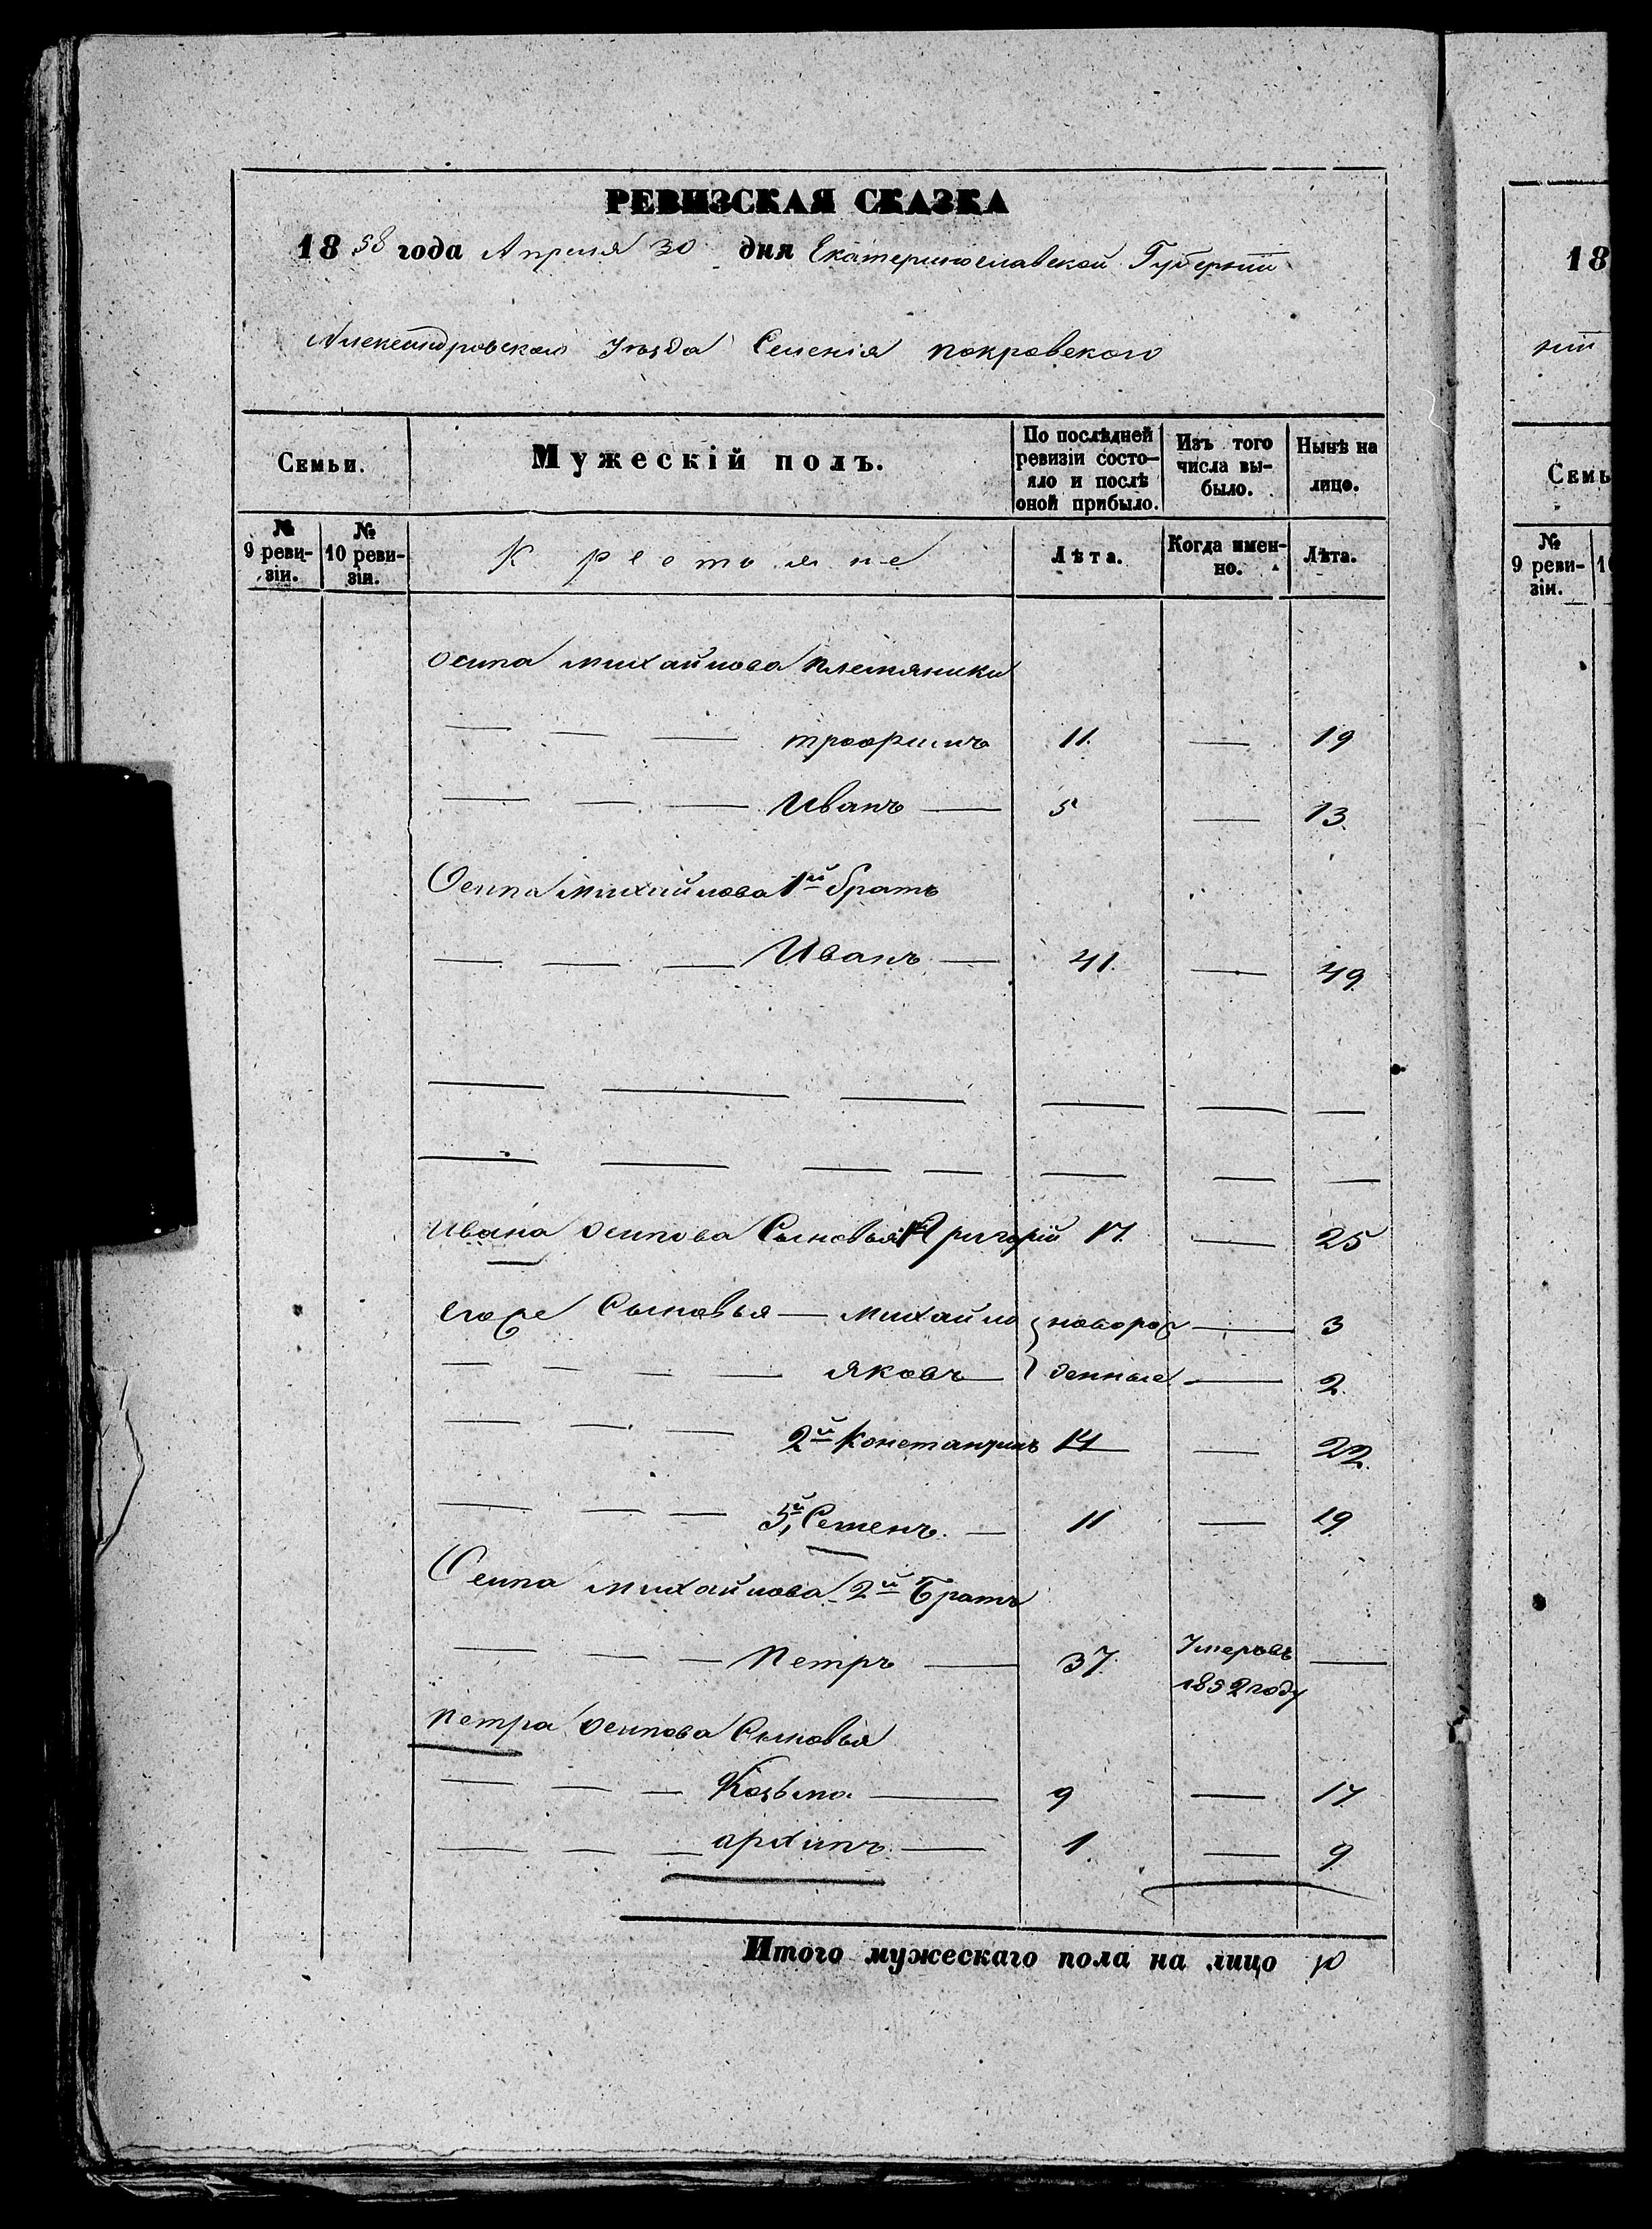 РЕВИЗСКАЯ СКАЗКА
1858 года Апреля 30 дня Екатеринославской Губернии
Александровскаго Уѣзда Селенія покровскаго
Семьи.
Мужескій полъ.
По послѣдней ревизіи состо-
яло и послѣ
оной прибыло.
Изъ того
числа вы-
было.
Нынѣ на
лицо.
№
9 реви-
зіи.
№
10 реви-
зіи.
Крестьяне
Лѣта.
Когда имен-
но.
Лѣта.
осипа михайлова племяники
— — — трофимъ 11. — 19
— — — Иванъ — 5 — 13.
Осипа михайлова 1й братъ
— — — Иванъ — 41. — 49.
— — — — — —
— — — — — — —
ивана осипова Сыновья 1й Григорій 17. — 25
его же Сыновья — михайло новорож — 3
— — — — яковъ — денные — 2.
— — — 2й Константинъ 14 — 22.
— — — 3й Семенъ. — 11 — 19.
Осипа михайлова 2й Братъ
— — — петръ — 37. Умеръ въ —
1852 году
петра осипова Сыновья
— — — Козьма — 9 — 17.
— — — архипъ — 1. — 9
Итого мужескаго пола на лицо 10
18
нии
Семь
№
9 реви-
зіи.